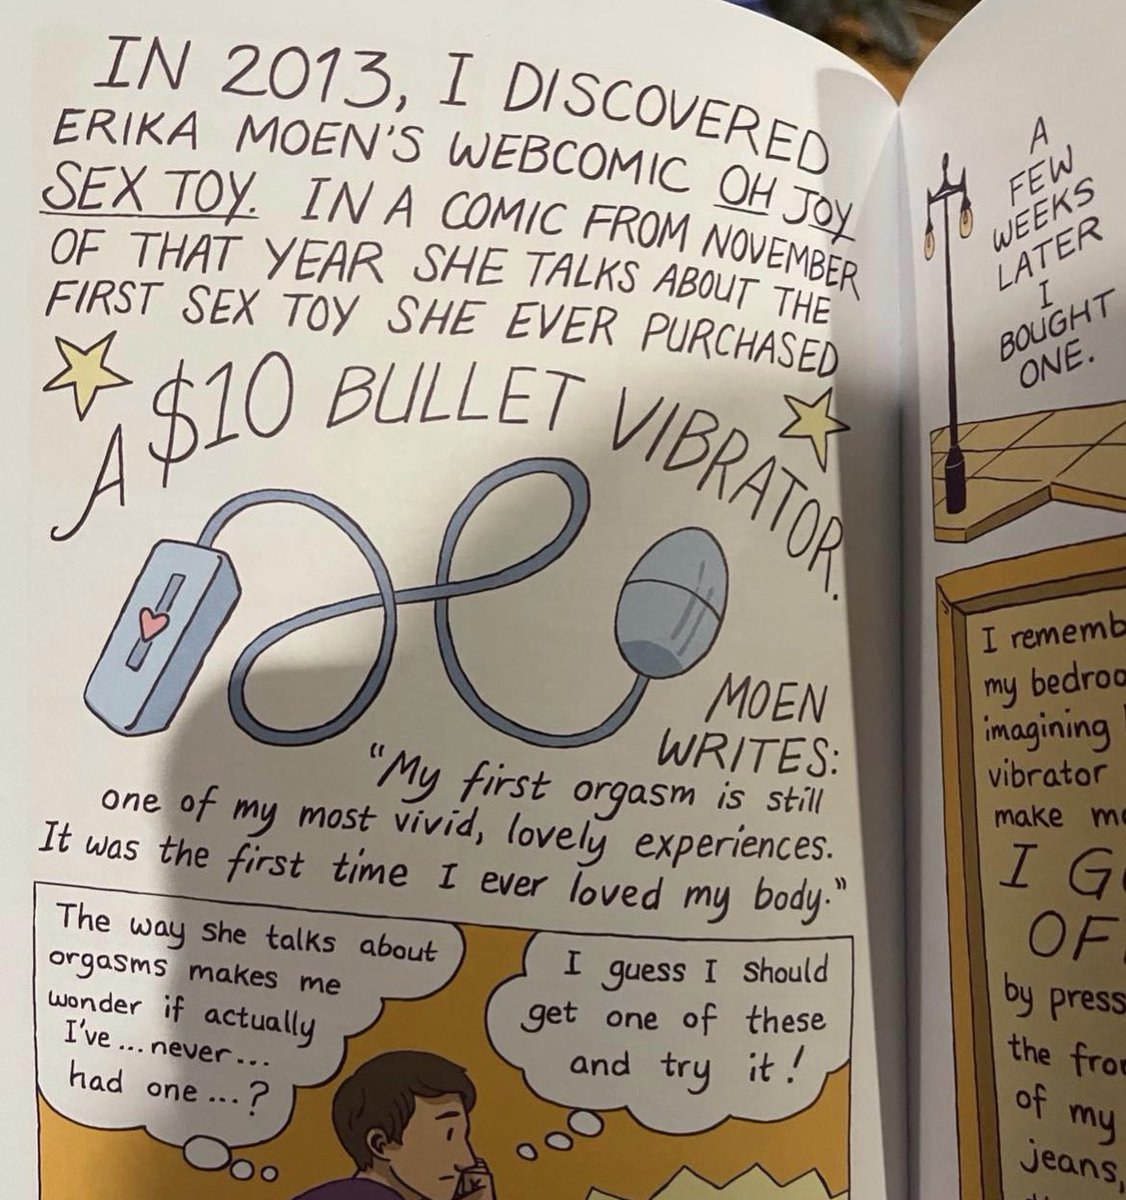 IN 2013, I DISCOVERED
ERIKA MOEN'S WEBCOMIC OH JOY
SEX TOY. IN A COMIC FROM NOVEMBER
OF THAT YEAR SHE TALKS ABOUT THE
FIRST SEX TOY SHE EVER PURCHASED
A $10 BULLET VIBRATOR.
MOEN
WRITES:
"My first orgasm is still
one of my most vivid, lovely experiences.
It was the first time I ever loved my body."
The way she talks about
orgasms makes me
wonder if actually
I've...never...
had one...?
I guess I should
get one of these
and try it!
A
FEW
WEEKS
LATER
I
BOUGHT
ONE.
I rememb
my bedroo
imagining
vibrator
make
I
OF
by press
the fro
of my
jeans,